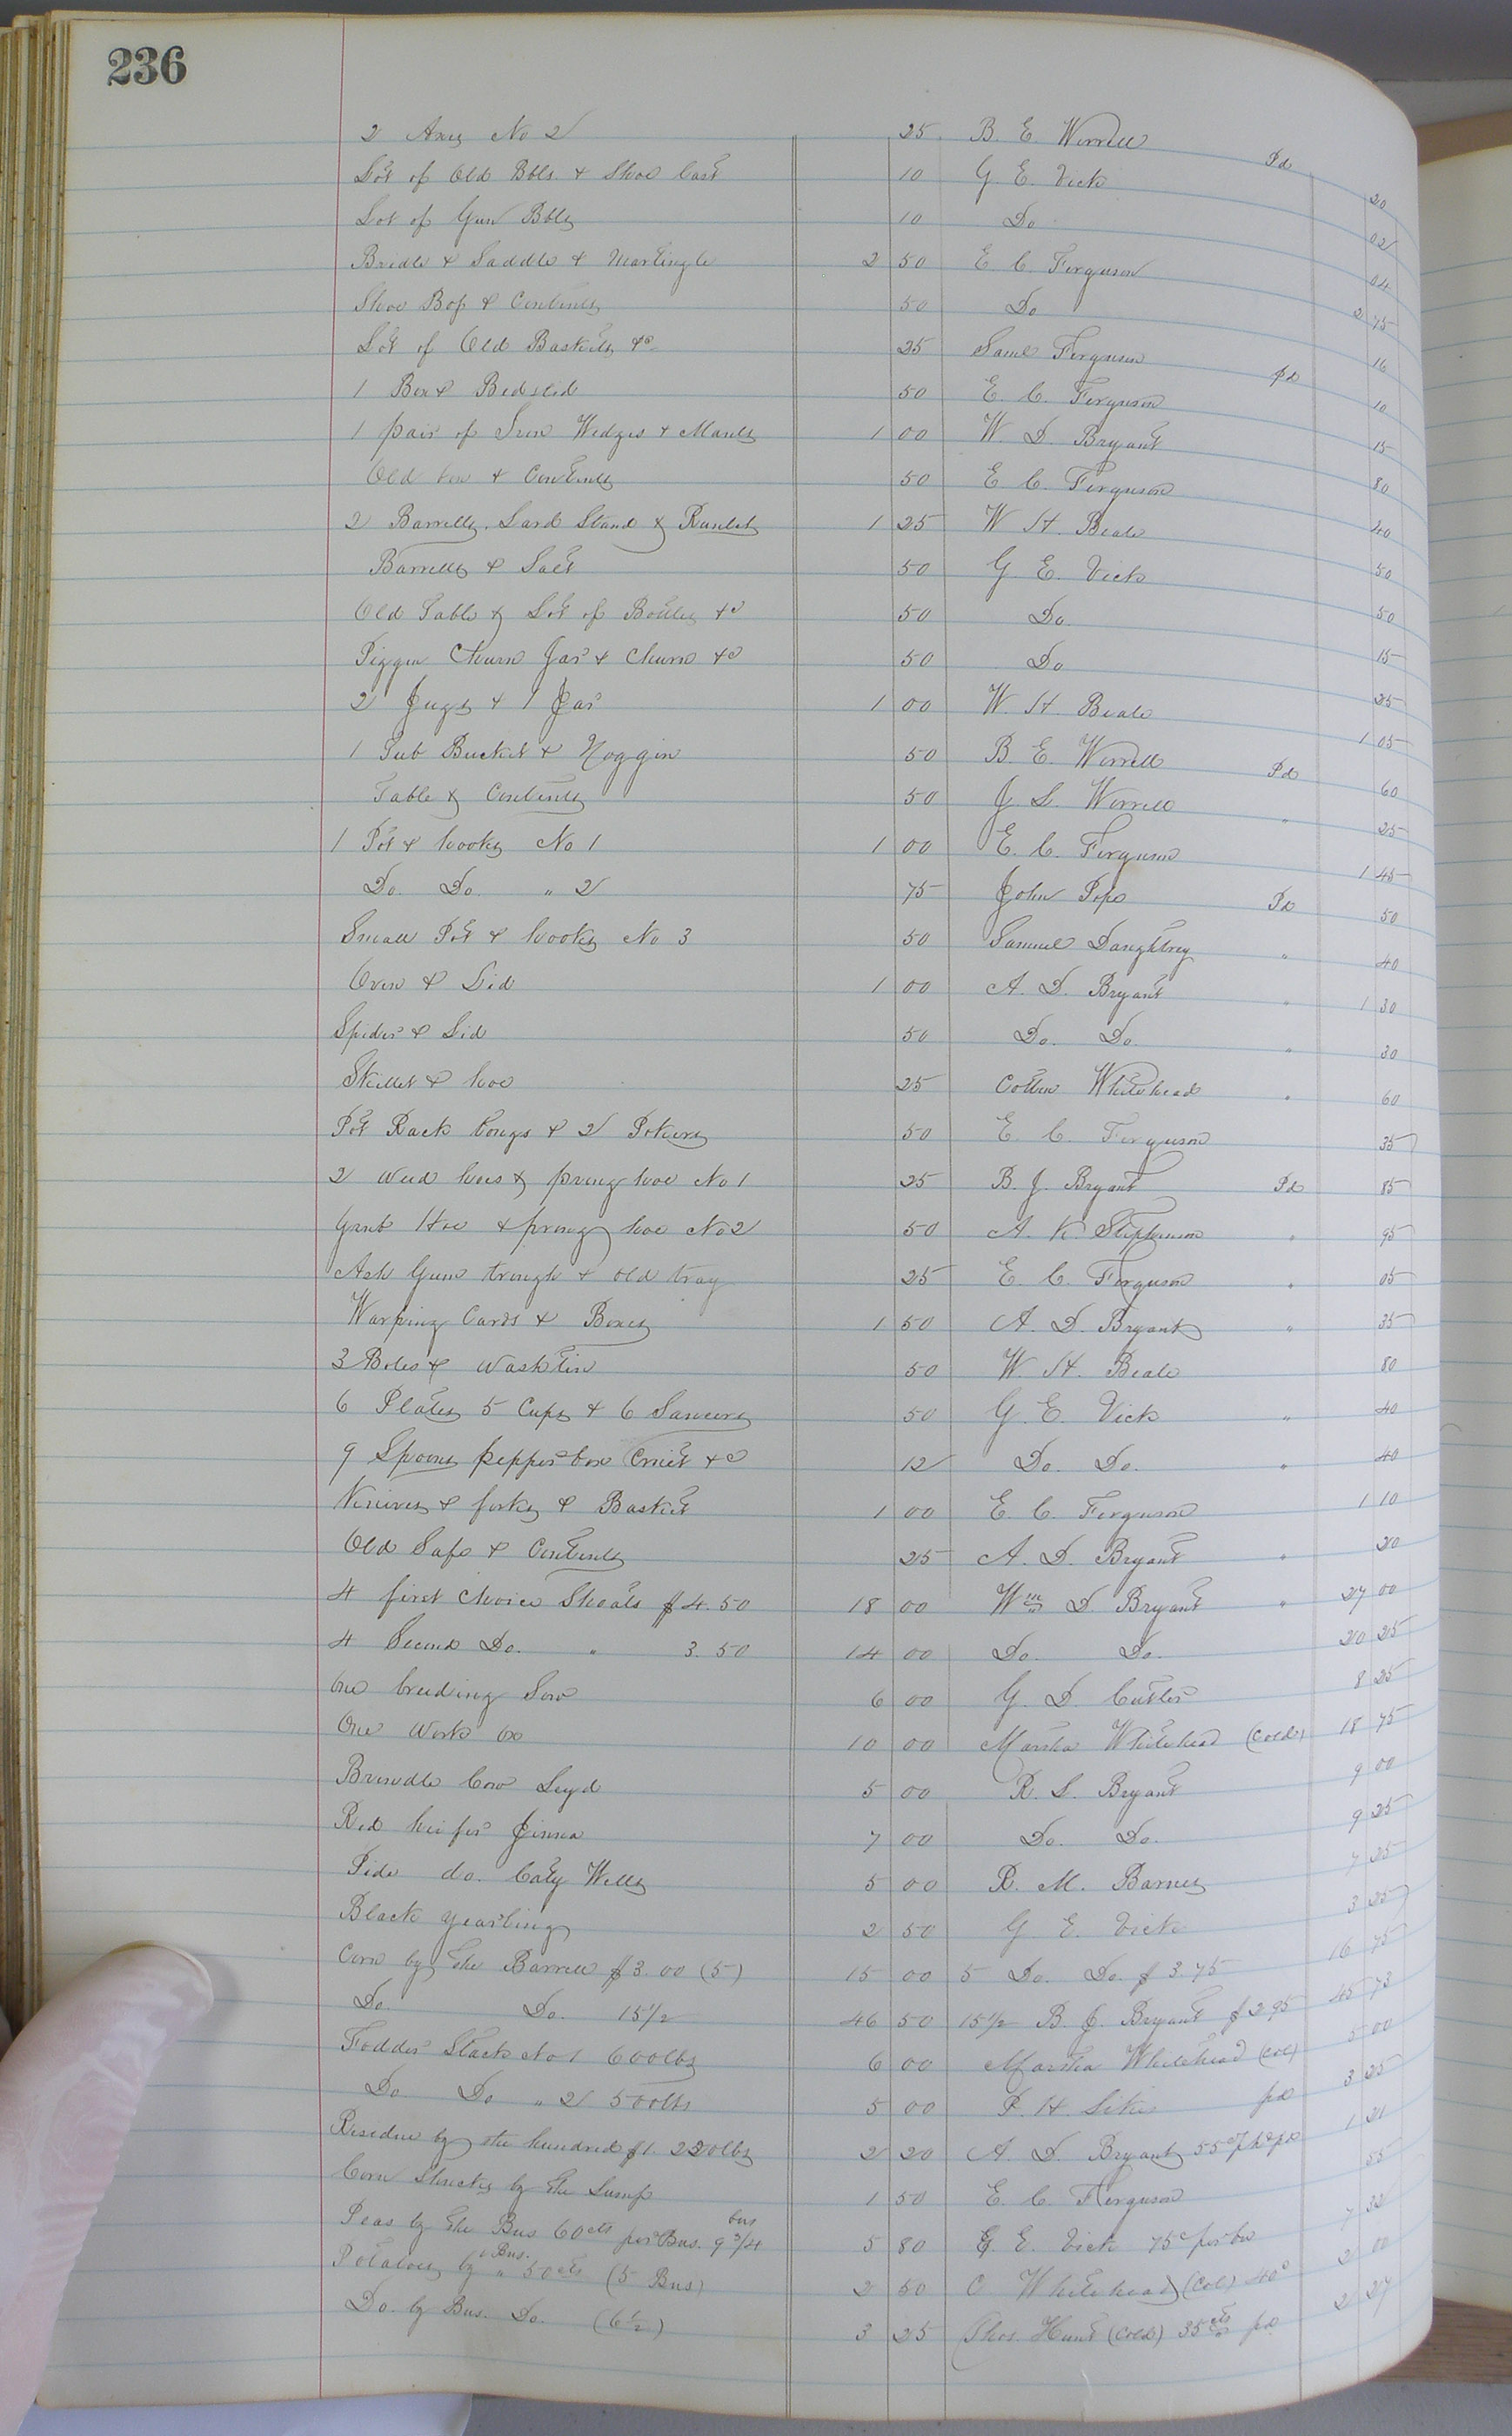 236
2 Axes No 2 25 B. E. Worrell Pd 20
Lot of Old Bbls. & Shoe Last 10 G. E. Vick 02
Lot of Gun Bbls 10 Do 04
Bridle & Saddle & Martingle 2 50 E. C. Ferguson 2 75
Shoe Box & Contents 50 Do 16
Lot of Old Baskets &c 25 Saml Ferguson pd 10
1 Box & Bedsted 50 E. C. Ferguson 15
1 pair of Iron Wedges & Mauls 1 00 W. D. Bryant 80
Old box & Contents 50 E. C. Ferguson 40
2 Barrells, Lard Stand & Runlet 1 25 W. H. Beale 50
Barrells & Salt 50 G. E. Vick 50
Old Table & Lot of Bottles &c 50 Do. 15
Piggin Churn Jar & Churn &c 50 Do 25
2 Jugs & 1 Jar 1 00 W. H. Beale 1 05
1 Tub Bucket & Noggin 50 B. E. Worrell Pd 60
Table & Contents 50 J. L. Worrell " 25
1 Pot & hooks No 1 1 00 E. C. Ferguson 1 45
Do. Do. " 2 75 John Pope Pd 50
Small Pot & hooks No 3 50 Samuel Daughtrey " 40
Oven & Lid 1 00 A. D. Bryant " 1 30
Spider & Lid 50 Do. Do. " 30
Skillet & hoe 25 Cotten Whitehead " 60
Pot Rack tongs & 2 Pokers 50 E. C. Ferguson 35
2 Weed hoes & prong hoe No 1 25 B. J. Bryant Pd 85
Grub Hoe & prong hoe No 2 50 A. K. Stephenson " 95
Ash Gum trough & old tray 25 E. C. Ferguson " 05
Warping Cards & Boxes 1 50 A. D. Bryant " 35
3 Boles & Wash tin 50 W. H. Beale 80
6 Plates 5 Cups & 6 Saucers 50 G. E. Vick " 40
9 Spoons pepper box Cruet &c 12 Do. Do. " 40
Knives & forks & Basket 1 00 E. C. Ferguson 1 10
Old Safe & Contents 25 A. D. Bryant " 20
4 first Choice Shoats $4.50 18 00 Wm D. Bryant " 27 00
4 Second Do. " 3.50 14 00 Do. Do. 20 25
One breeding Sow 6 00 G. D. Cutler 8 25
One Work Ox 10 00 Marsha Whitehead (Cold) 18 75
Brindle Cow 5 00 R. S. Bryant 9 00
Red heifer 7 00 Do. Do. 9 25
Pide do. Caty Wells 5 00 R. M. Barnes 7 25
Black yearling 2 50 G. E. Vick 3 25
Corn by the Barrell $3.00 (5) 15 00 5 Do. Do. $3.75 16 75
Do. Do. 15 1/2 46 50 15 1/2 B. J. Bryant $2.95 45 73
Fodder Stack No 1 600lbs 6 00 Marsha Whitehead (Col) 5 00
Do. Do " 2 500lbs 5 00 P. H. Sikes pd 3 25
Residue by the hundred $1. 220lbs 2 20 A. D. Bryant 55c pd 1 21
Corn Shucks by the Lump 1 50 E. C. Ferguson 55
Peas by the Bus 60cts per Bus. 9 3/4 bus 5 80 G. E. Vick 75c per bu 7 32
Potatoes by " Bus. 50cts (5 Bus) 2 50 C Whitehead (Col) 40c 2 00
Do. by Bus. Do. (6 1/2) 3 25 Thos. Hunt (Cold) 35cts pd 2 27